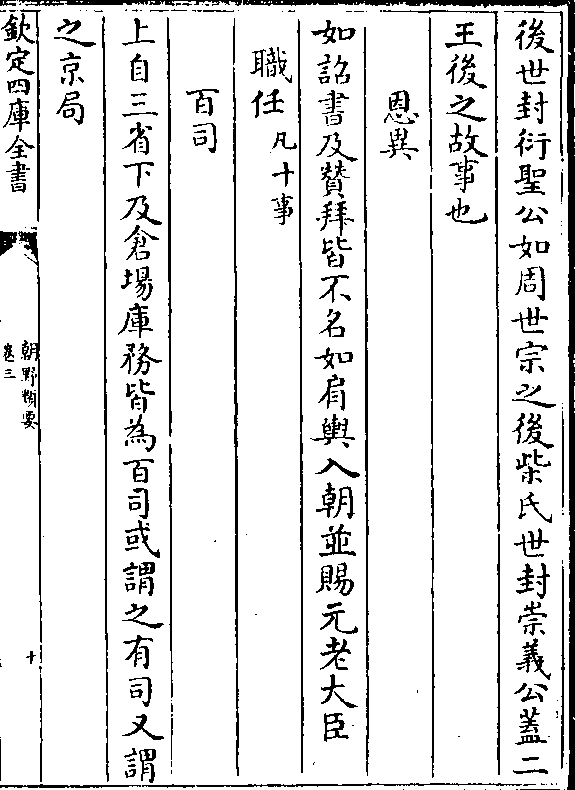 後世封衍聖公如周世宗之後柴氏世封崇義公蓋二
王後之故事也
恩異
如詔書及贊拜皆不名如肩輿入朝並賜元老大臣
職任凡十事
百司
上自三省下及倉場庫務皆為百司或謂之有司又謂
之京局
欽定四庫全書
朝野類要
卷三
十